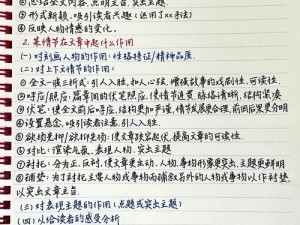 ②总结全文内容,点明主旨,突出主题
③形式新颖,吸引读者兴趣(运用了××手法)
④反映人物情感的变化。
2.某情节在文章中起什么作用
(一)对刻画人物的作用:性格特征/精神品质
(二)对上下文情节的作用:
①全文一波三折式:引人入胜,扣人心弦,增强故事的戏剧性、可读性。
②呼应/照应:篇章间的伏笔照应,使情节连贯、脉络清晰,结构紧凑
③伏笔:使全文前后呼应,结构更加严谨,情节发展更合理,前因后果更分明
④设置悬念,吸引读者注意,引人入胜。
⑤欲扬先抑/欲抑先扬:使文章跌宕起伏,提高文章的可读性。
⑥对比:渲染气氛、表现人物、突出主题
⑦衬托:分为正、反衬,使文章更生动、人物、事物形象更突出,主题更鲜明
⑧铺垫:为了衬托主要人物或事物而铺叙另外的人物或事物以作衬垫,
以突出文章主旨。
(三)对表现主题的作用(点题或突出主题)
(四)从给读者的感受分析